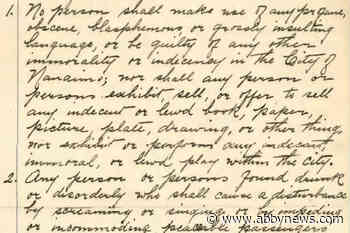 1. No person shall make use of any profane,
obscene, blasphemous, or grossly insulting
language, or be guilty of any other
immorality or indecency in the City of
Nanaimo; nor shall any person or
persons exhibit, sell, or offer to sell
any indecent or lewd book, paper,
picture, plate, drawing, or other thing,
nor exhibit or perform any indecent,
immoral, or lewd play within the City.
2. Any person or persons found drunk
or disorderly who shall cause a disturbance
by screaming or singing or in impeding
or incommoding peaceable passengers
www.abbynews.com